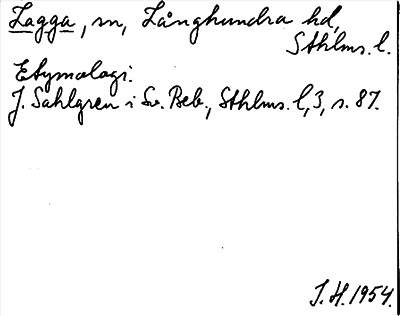 Lagga, sn, Långhundra hd,
Sthlms. l.
Etymologi.
J. Sahlgren i Sv. Beb., Sthlms. l, 3, s. 87.
I. H. 1954.